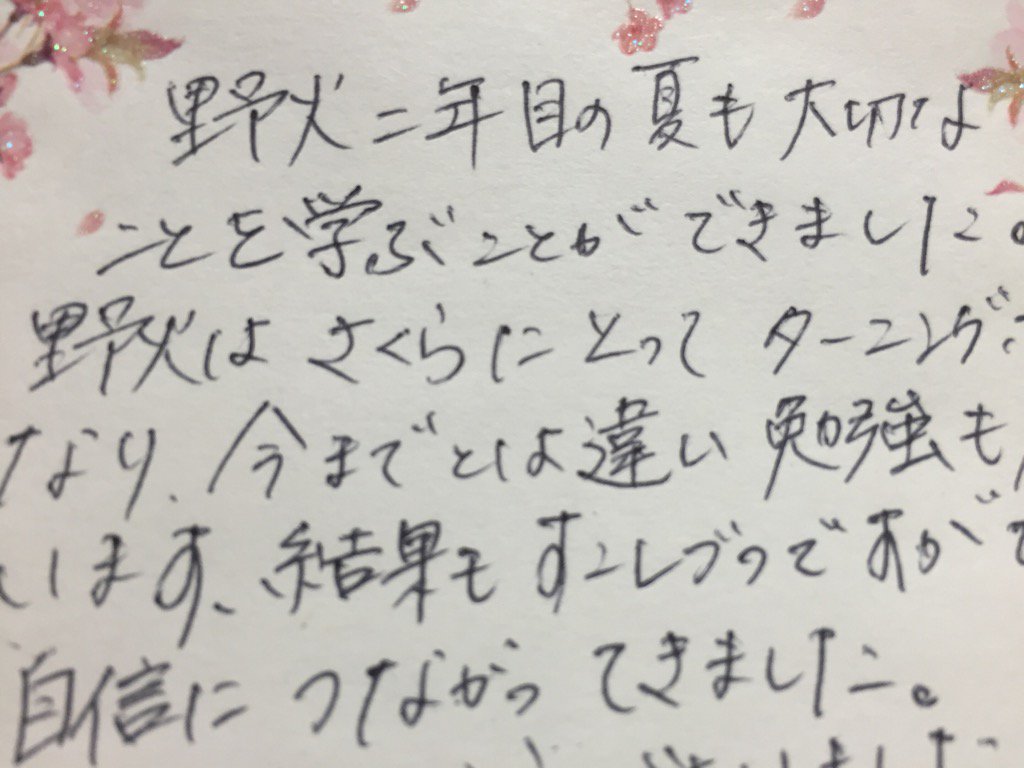 野火二年目の夏も大切な
ことを学ぶことができました。
野火はさくらにとってターニング
なり、今までとは違い勉強も
います、結果もすこしづつですがで
自信につながってきました。